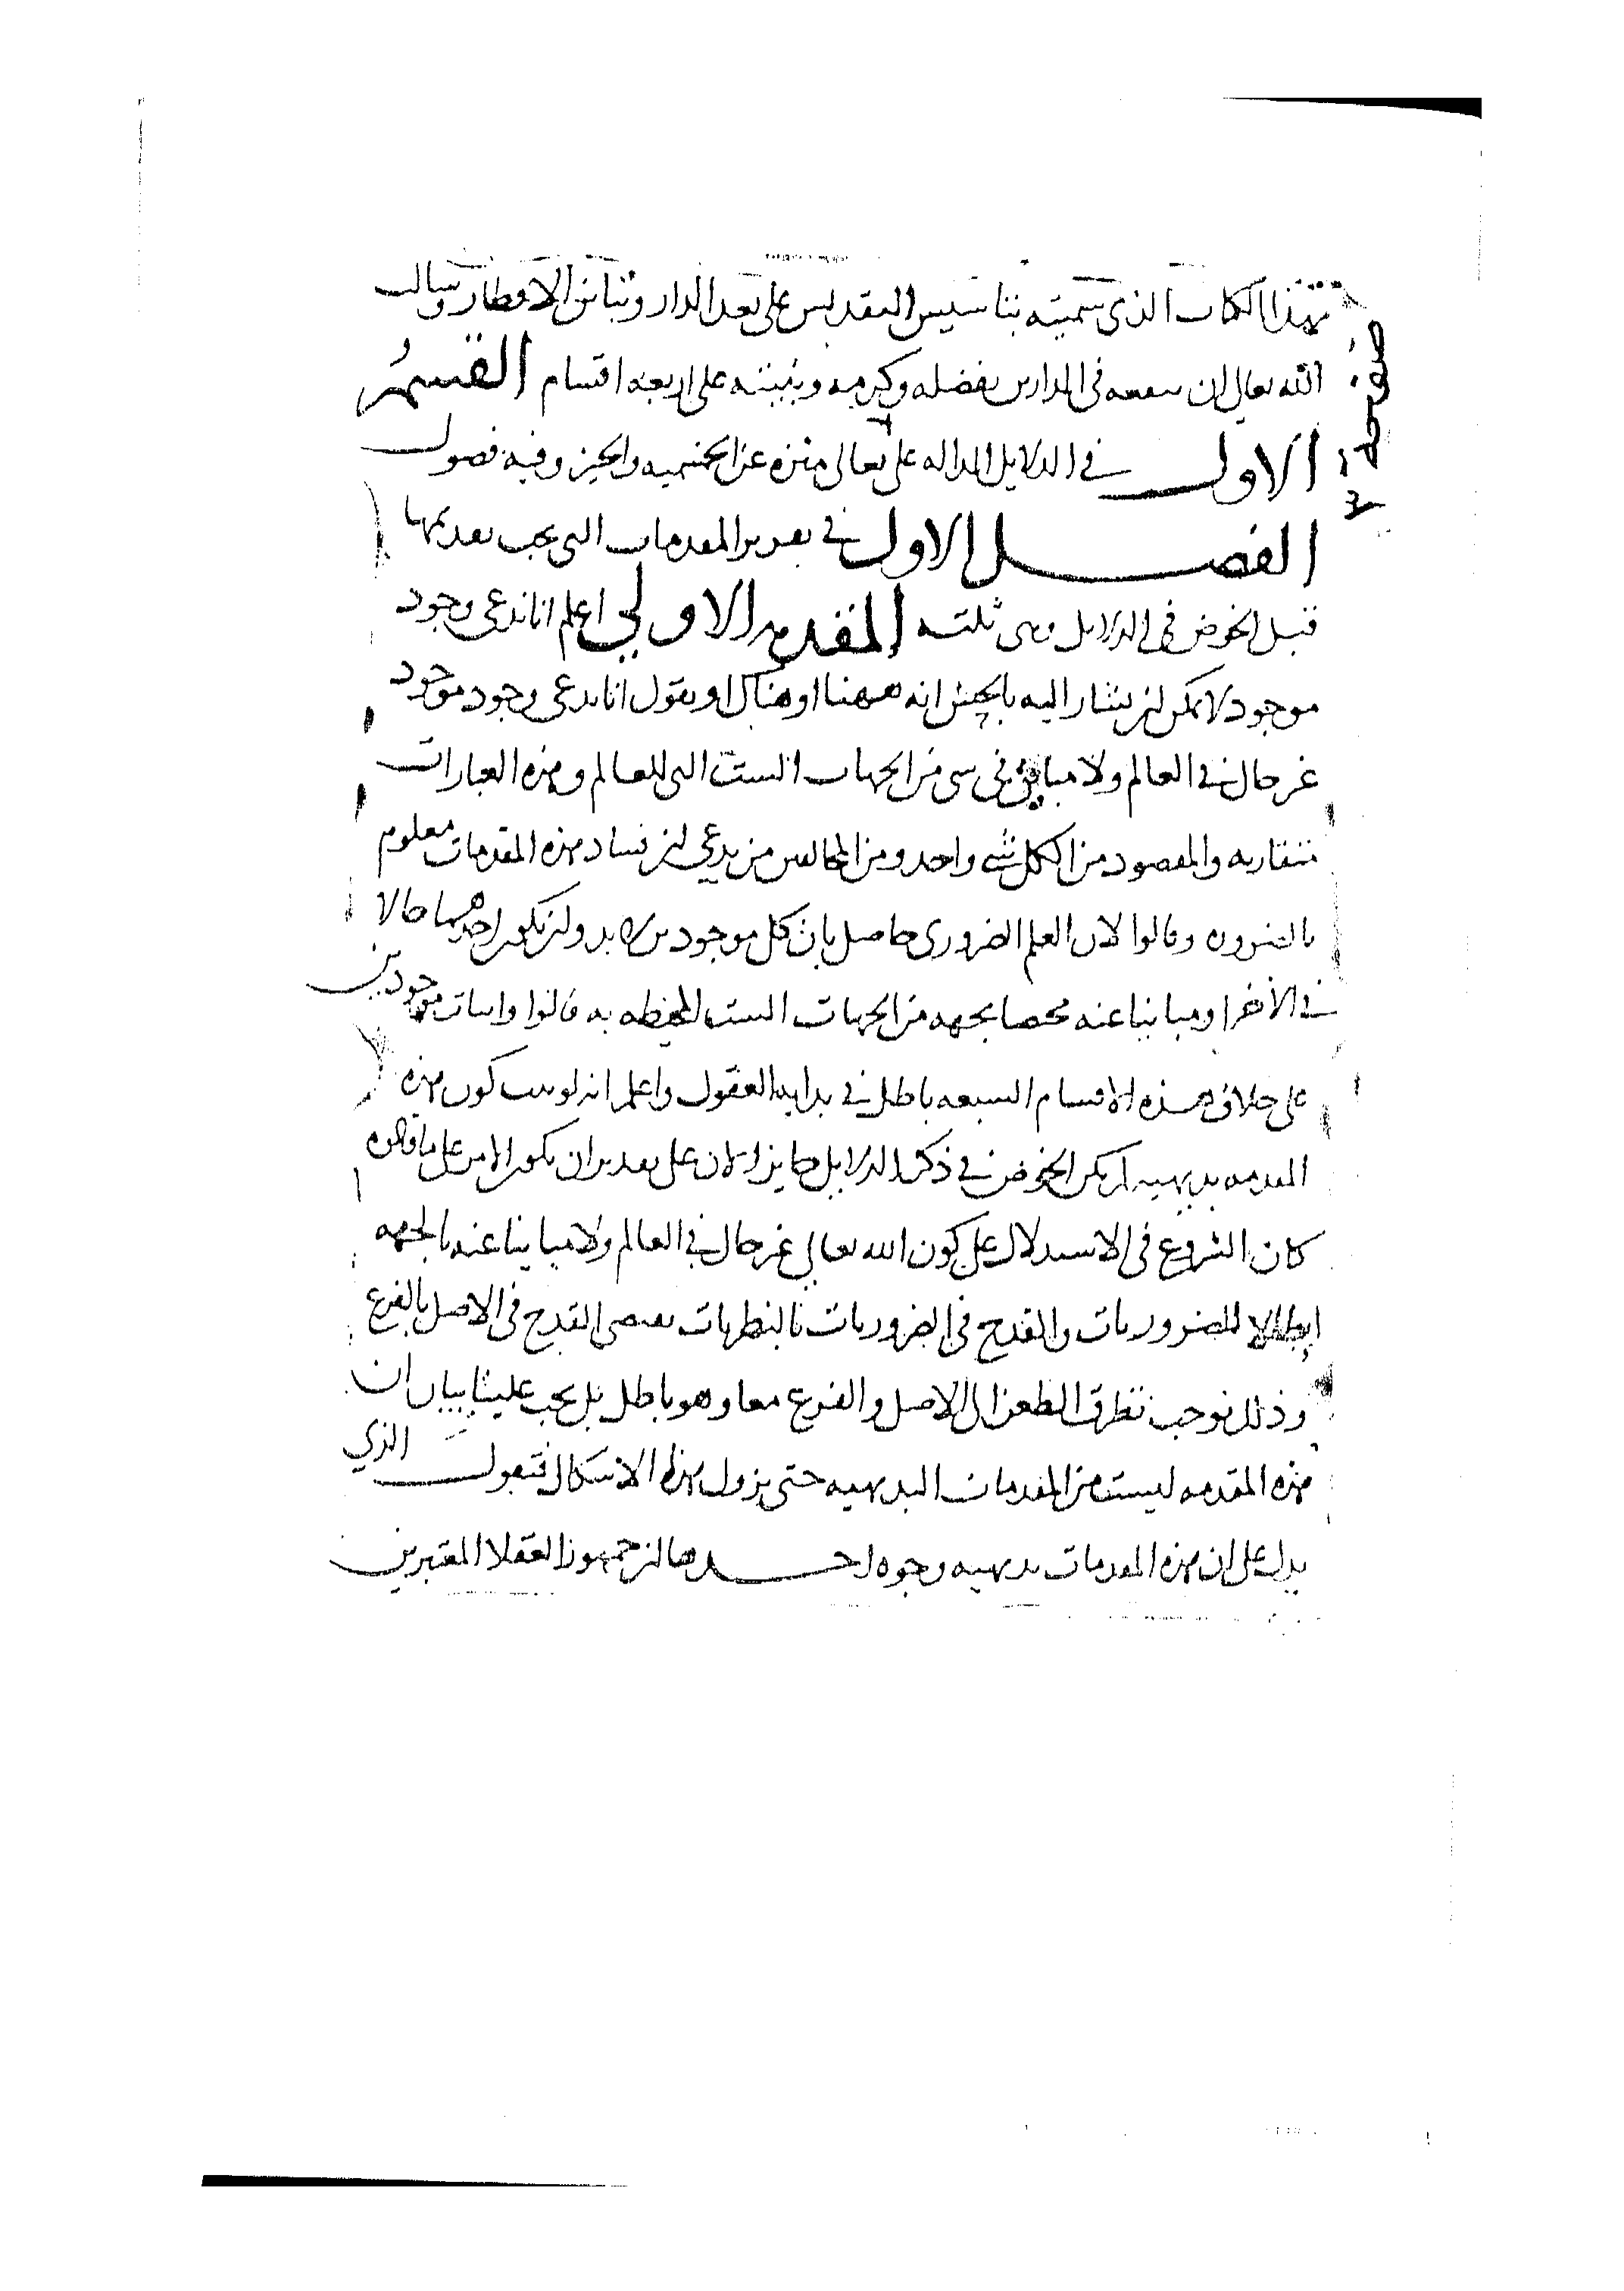 بهذا الكتاب الذى سميته بتاسيس التقديس على بعد الدار وتباين الاقطار وسالت
الله تعالى ان ينفعنا به فى الدارين بفضله وكرمه ورتبته على اربعه اقسام القسم
الاول فى الدلايل الداله على تعالى منزه عن الجسميه والحيز وفيه فصول
الفصل الاول فى تقرير المقدمات التى يجب تقديمها
قبل الخوض فى الدلايل وهى ثلثه المقدمه الاولى اعلم انا ندعى وجود
موجود لا يمكن ان يشار اليه بالحس انه ههنا او هناك او نقول انا ندعى وجود موجود
غير حال فى العالم ولا مباين فى شى من الجهات الست التى للعالم وهذه العبارات
متقاربه والمقصود من الكل شى واحد ومن المخالفين من يدعى ان فساد هذه المقدمات معلوم
بالضروره وقالوا لان العلم الضرورى حاصل بان كل موجودين لابد وان يكون احدهما حالا
فى الاخر او مباينا عنه مختصا بجهه من الجهات الست المحيطه به قالوا واثبات موجودين
على خلاف هذه الاقسام السبعه باطل فى بدايه العقول واعلم انه لو ثبت كون هذه
المقدمه بديهيه لم يكن الخوض فى ذكر الدلايل جايزا لان على تقدير ان يكون الامر على ما قالوه
كان الشروع فى الاستدلال على كون الله تعالى غير حال فى العالم ولا مباينا عنه بالجهه
ابطالا للضروريات والقدح فى الضروريات بالنظريات يقتضى القدح فى الاصل بالفرع
وذلك يوجب تطرق الطعن الى الاصل والفرع معا وهو باطل بل يجب علينا بيان ان
هذه المقدمه ليست من المقدمات البديهيه حتى يزول هذا الاشكال فنقول الذي
يدل على ان هذه المقدمات بديهيه وجوه احدها ان جمهور العقلا المعتبرين